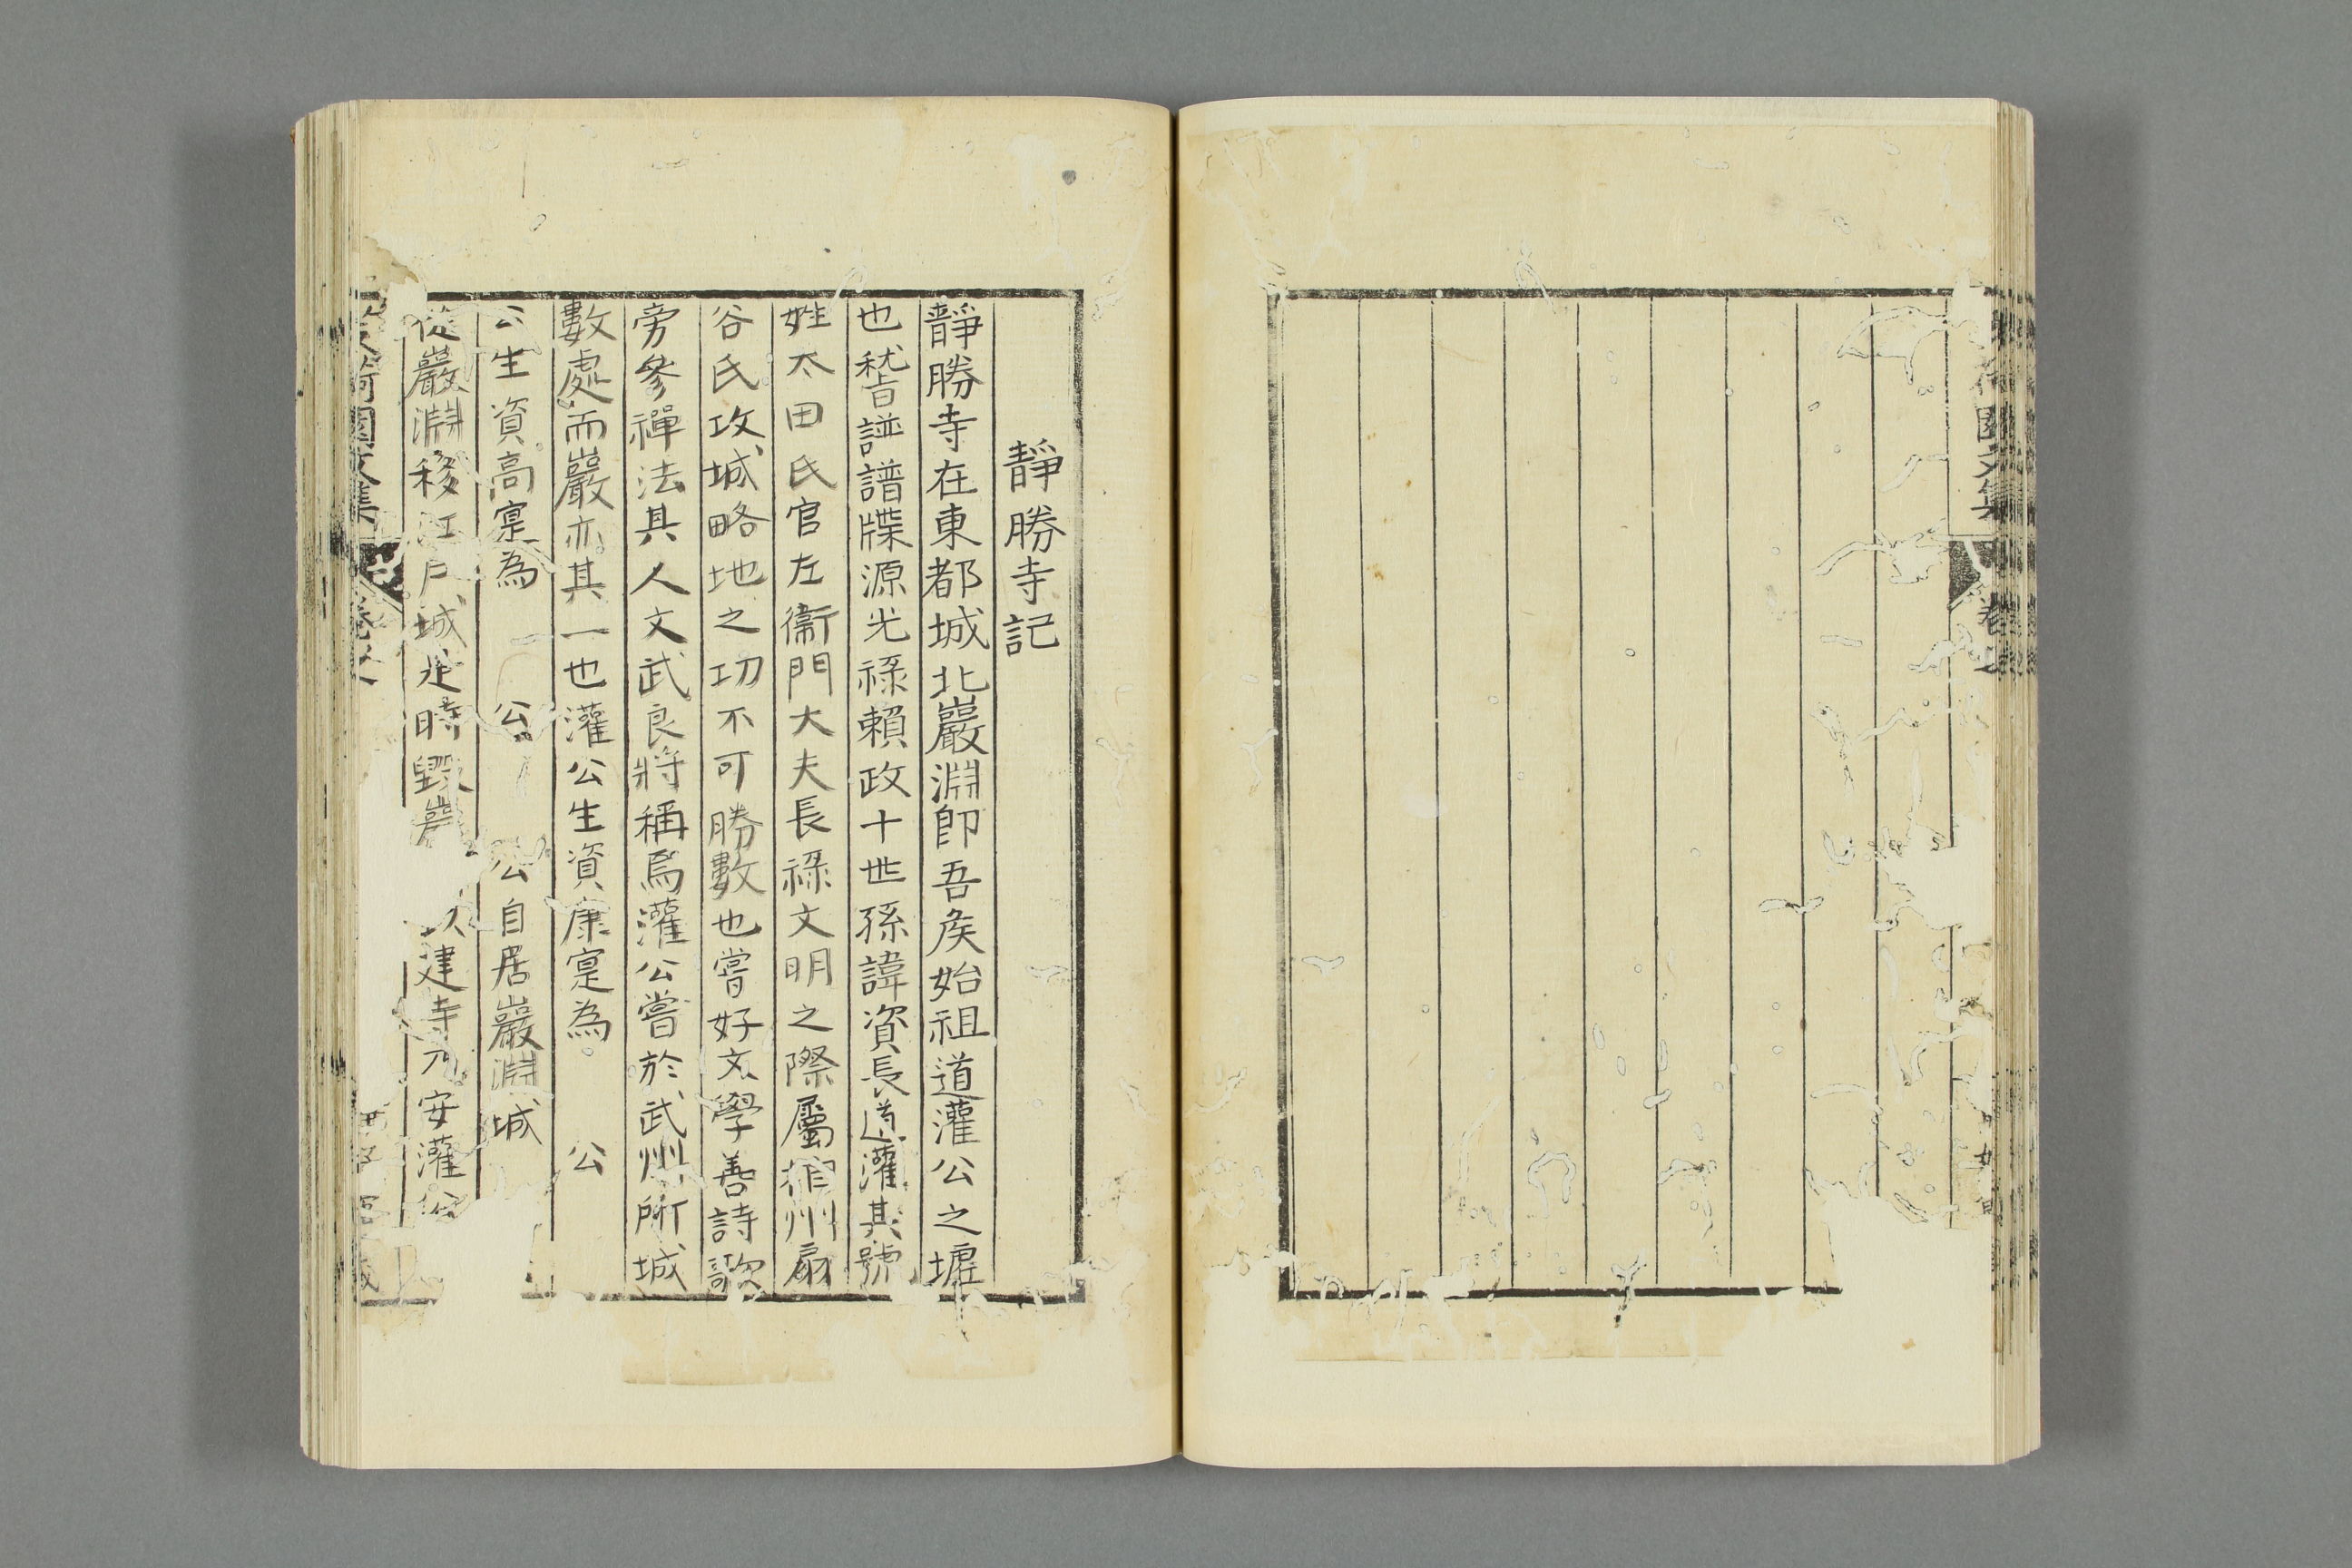 靜勝寺記
靜勝寺在東都城北巖淵卽吾矦始祖道灌公之墟
也嵇旹諩譜牒源光祿賴政十世孫諱資長道灌其號
姓太田氏官左衞門大夫長祿文明之際屬相州扇
谷氏攻城略地之功不可勝數也嘗好文學善詩歌
旁參禪法其人文武良將稱爲灌公嘗於武州所城
數處而巖亦其一也灌公生資康寔為 公
公生資高寔為 公 公自居巖淵城
從巖淵移江戶城是時毀巖 建寺乃安灌公
園文集
卷